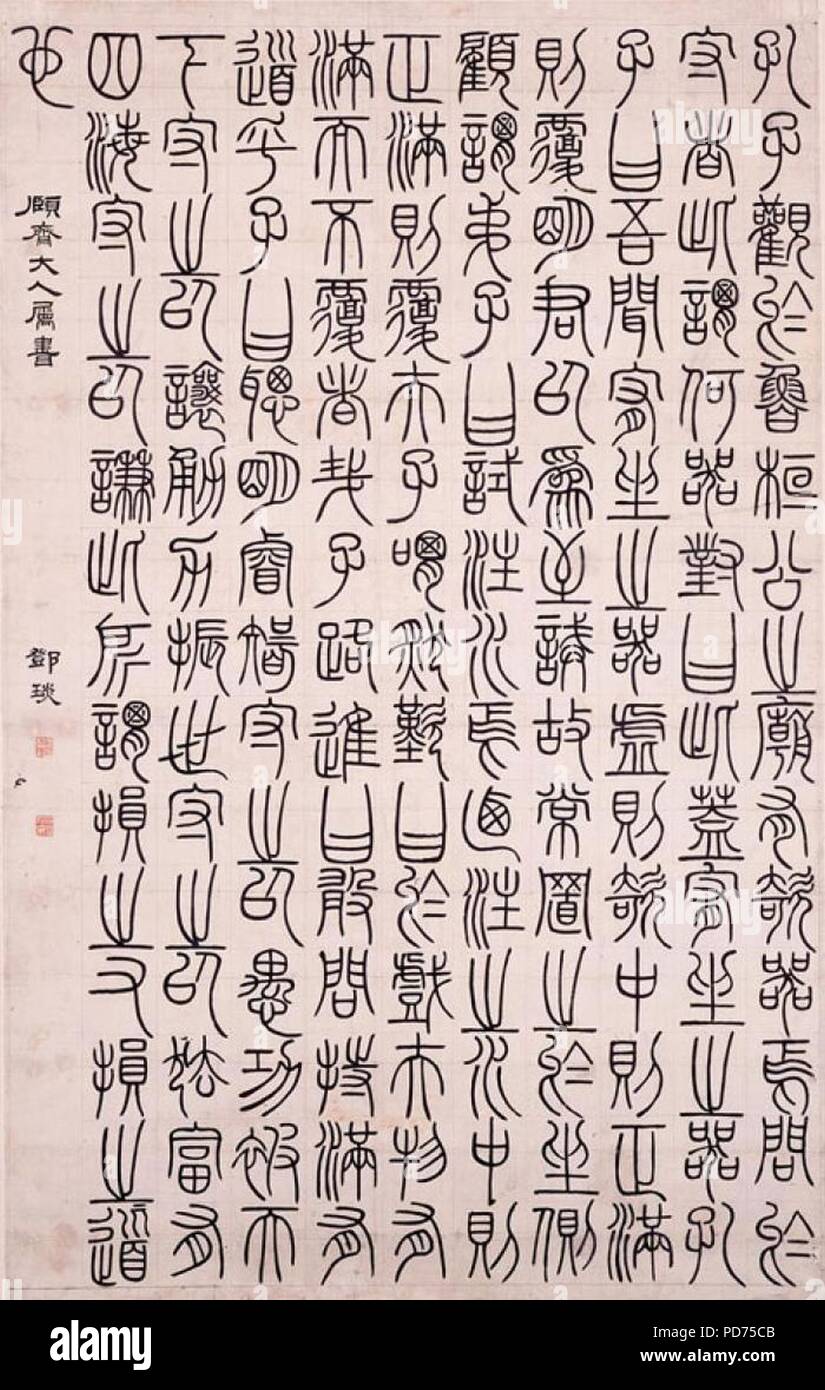 孔子觀於魯桓公之廟有欹器焉問於
守者此謂何器對曰此蓋宥坐之器孔
子曰吾聞宥坐之器虛則欹中則正滿
則覆明君以為至誡故常置之於坐側
顧謂弟子曰試注水焉迺注之水中則
正滿則覆夫子喟然歎曰於戲夫物有
滿而不覆者哉子路進曰敢問持滿有
道乎子曰聰明睿智守之以愚功被天
下守之以讓勇力振世守之以怯富有
四海守之以謙此所謂損之又損之道
也
頤齊大人屬書
鄧琰
alamy
Image ID: PD75CB
www.alamy.com